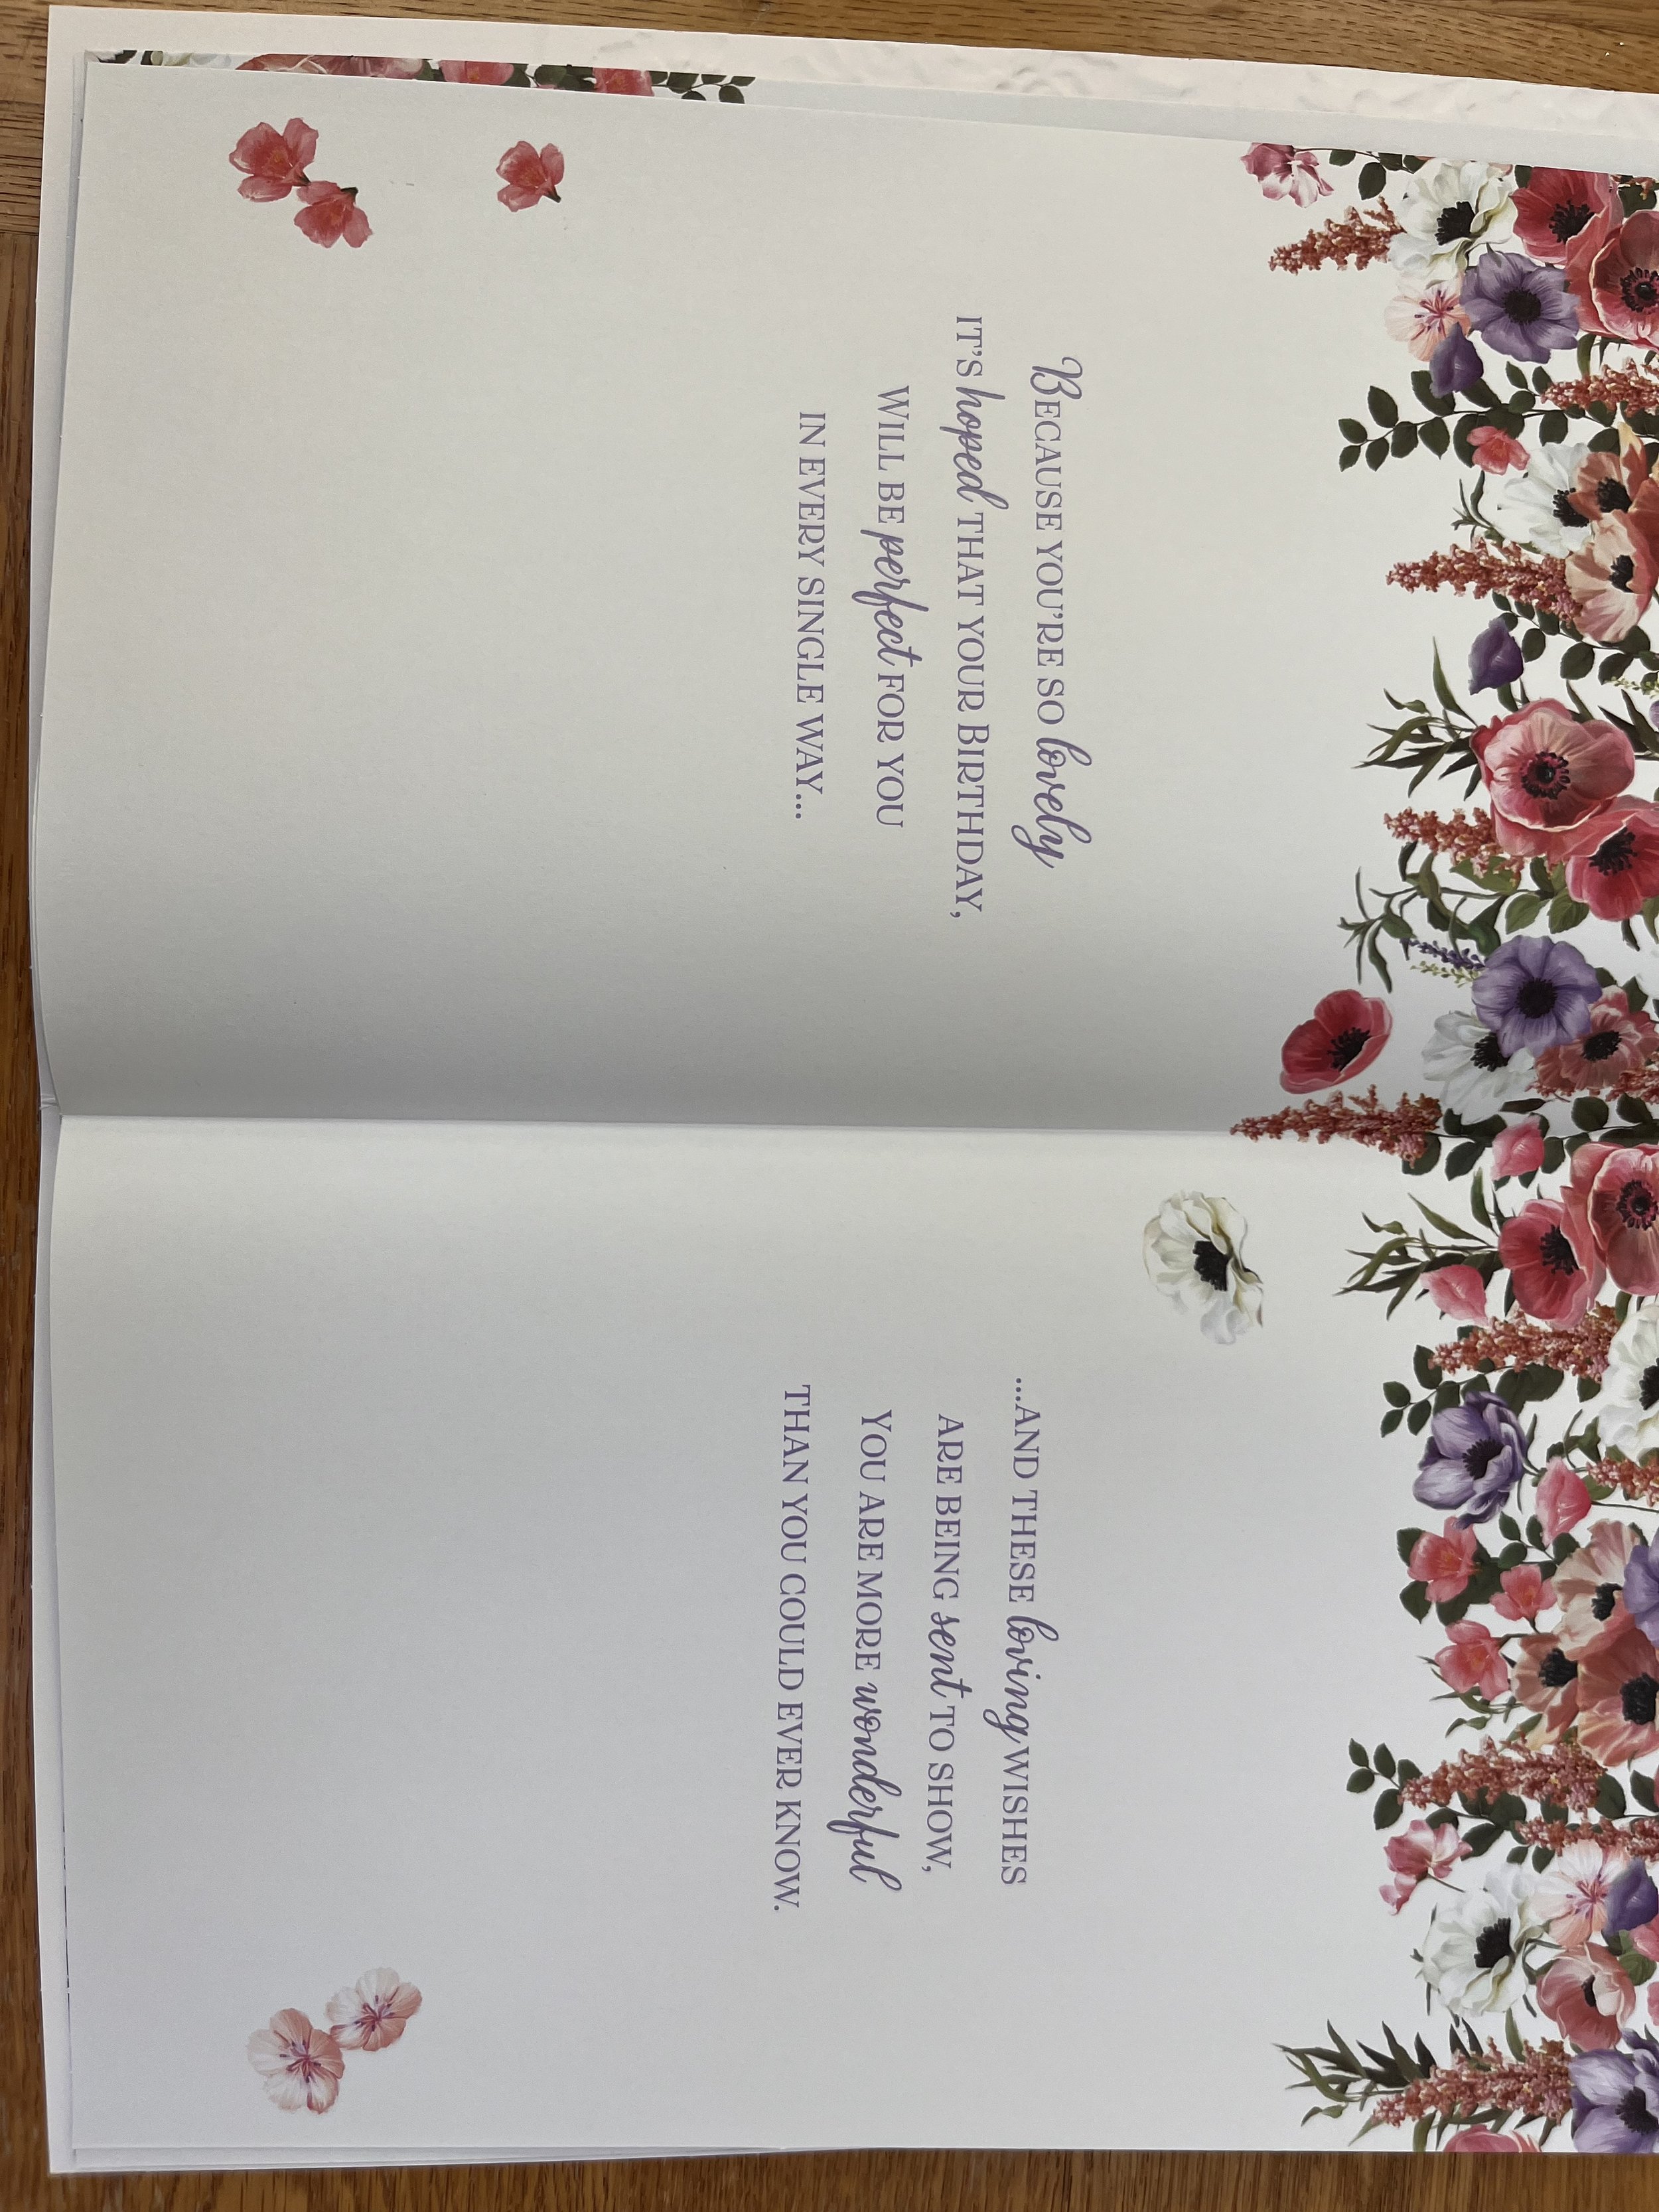 Because you're so lovely
it's hoped that your Birthday,
will be perfect for you
in every single way...
...and these loving wishes
are being sent to show,
you are more wonderful
than you could ever know.